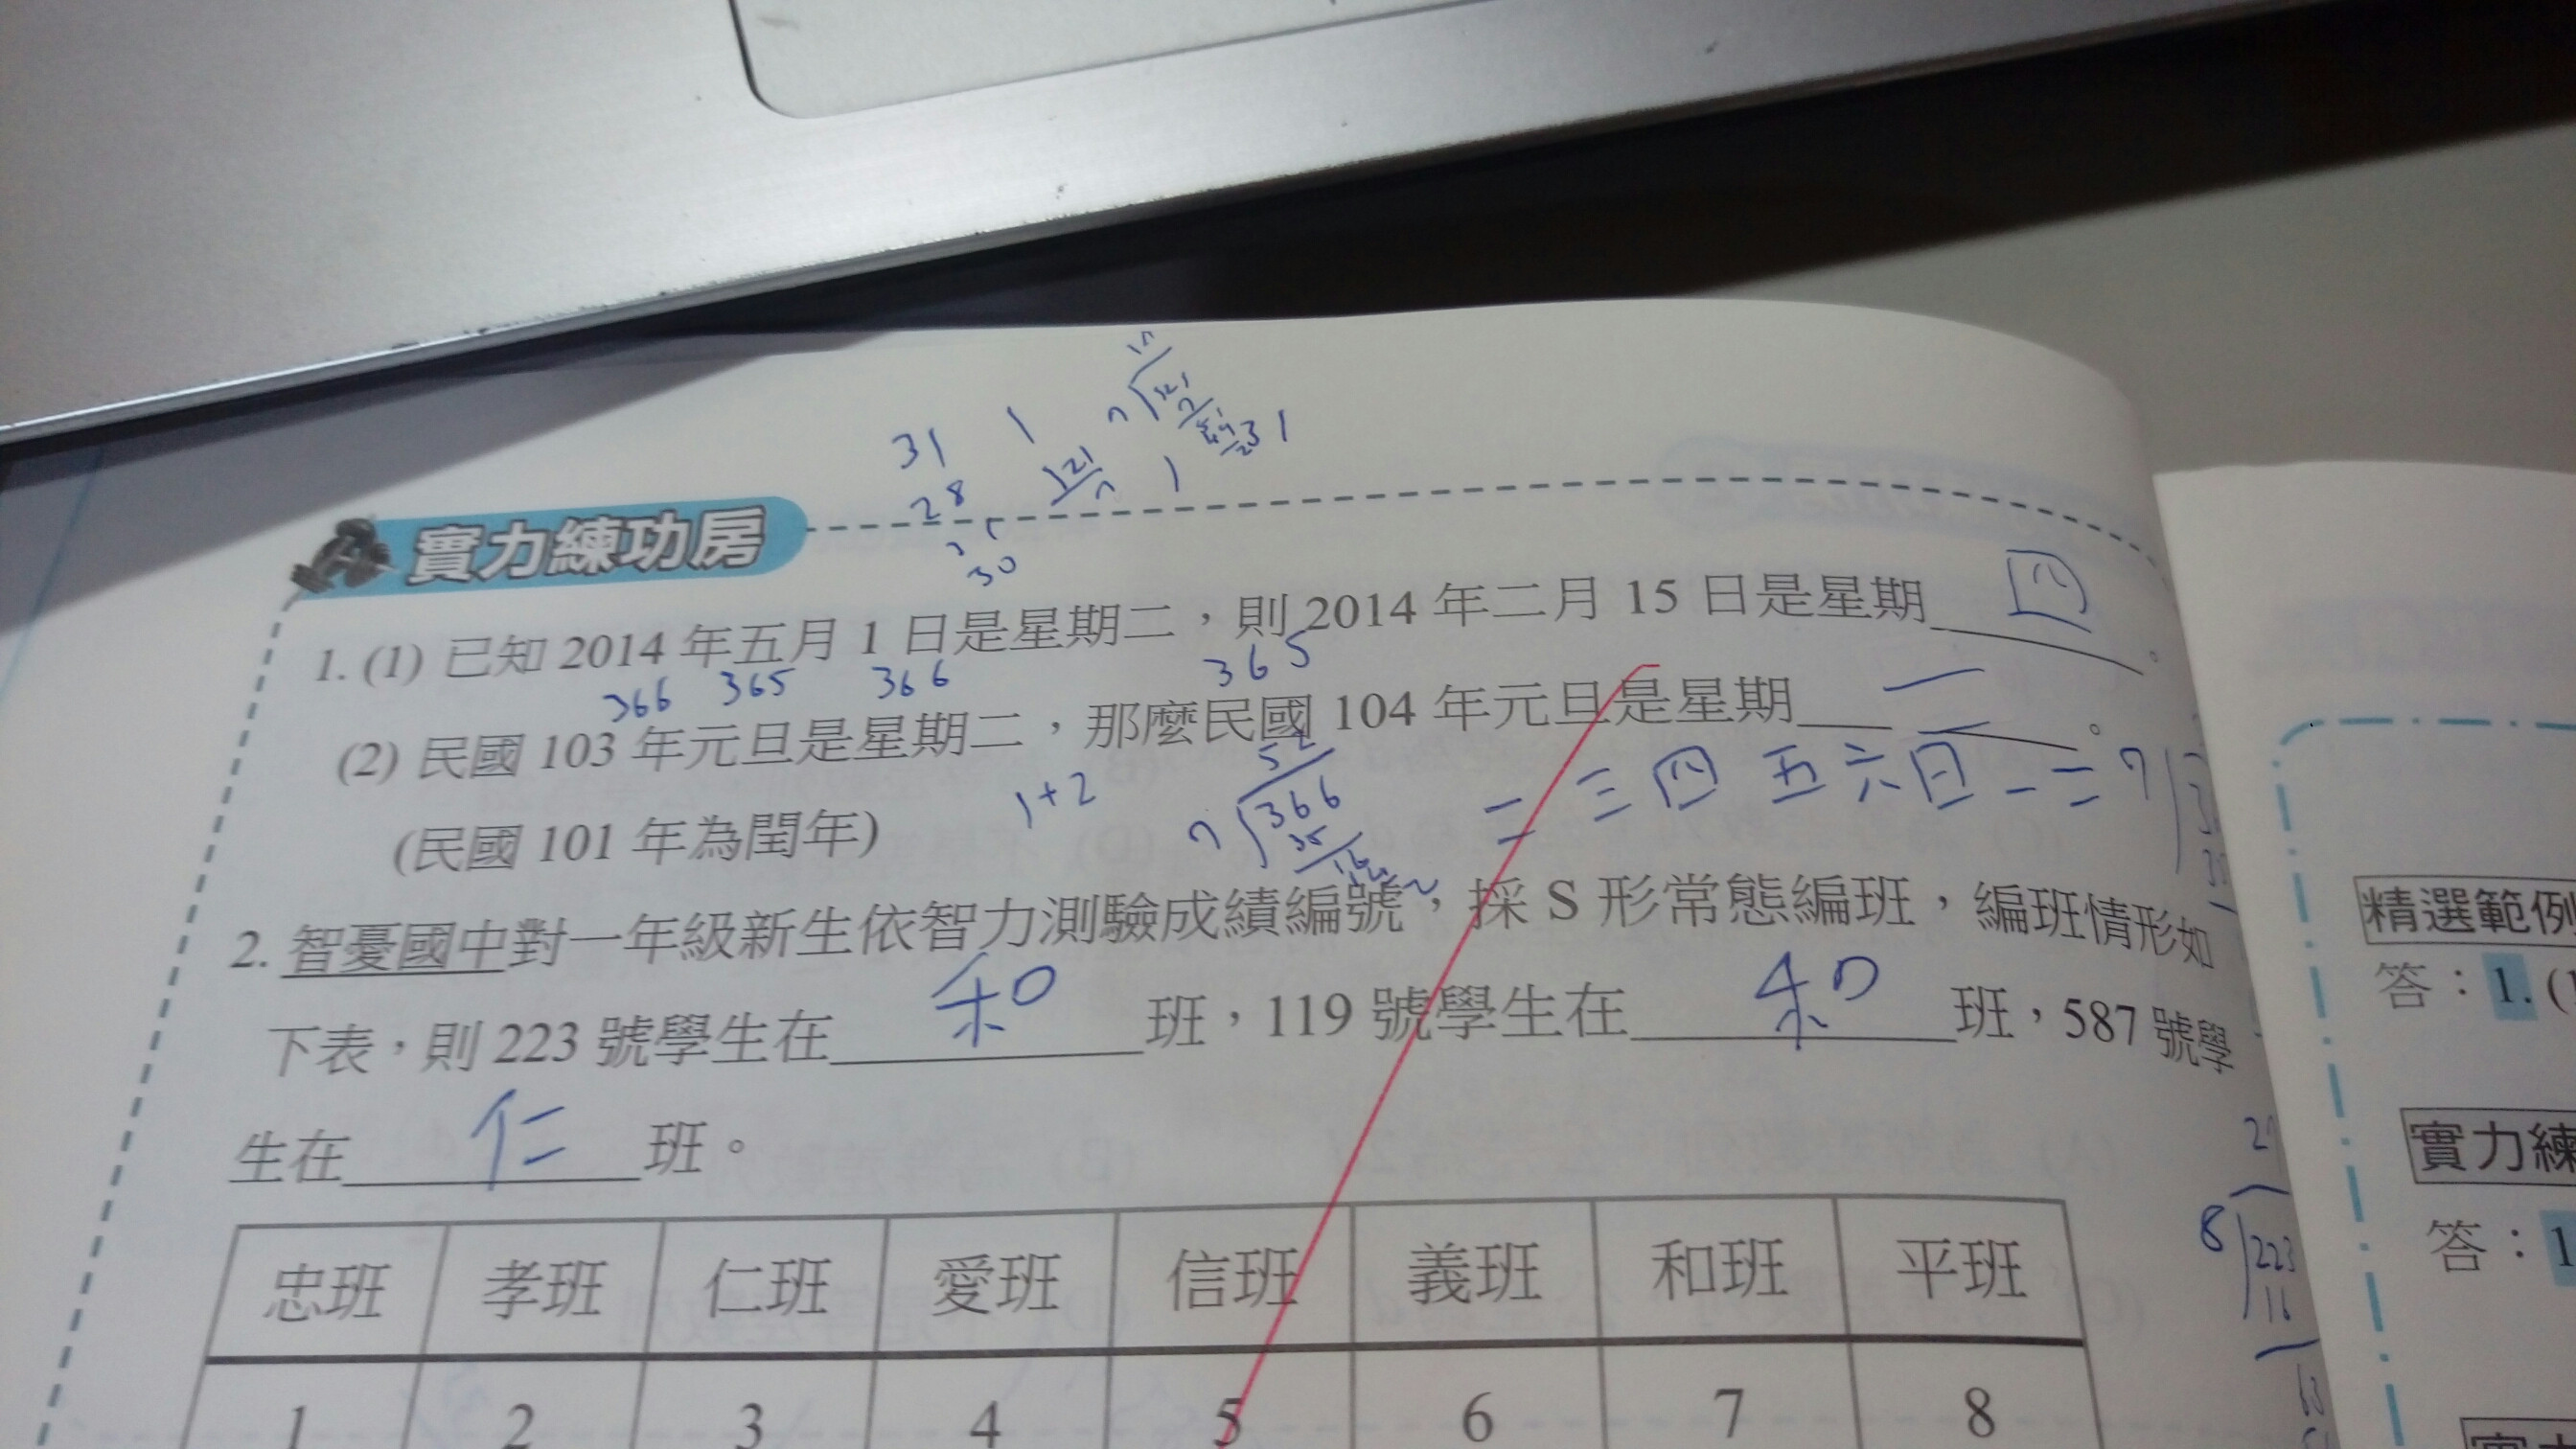 31 1
28
30
實力練功房
1. (1) 已知 2014 年五月 1 日是星期二，則 2014 年二月 15 日是星期 四 。
366 365 366 365
(2) 民國 103 年元旦是星期二，那麼民國 104 年元旦是星期 。
(民國 101 年為閏年) 1+2
52
7 366
35
16
二 三 四 五 六 日 一 二 7
2. 智憂國中對一年級新生依智力測驗成績編號，採 S 形常態編班，編班情形如
下表，則 223 號學生在 和 班，119 號學生在 和 班，587 號學
生在 仁 班。
忠班 孝班 仁班 愛班 信班 義班 和班 平班
1 2 3 4 5 6 7 8
8 223
16
精選範例
答：1. (1
實力練
答：1